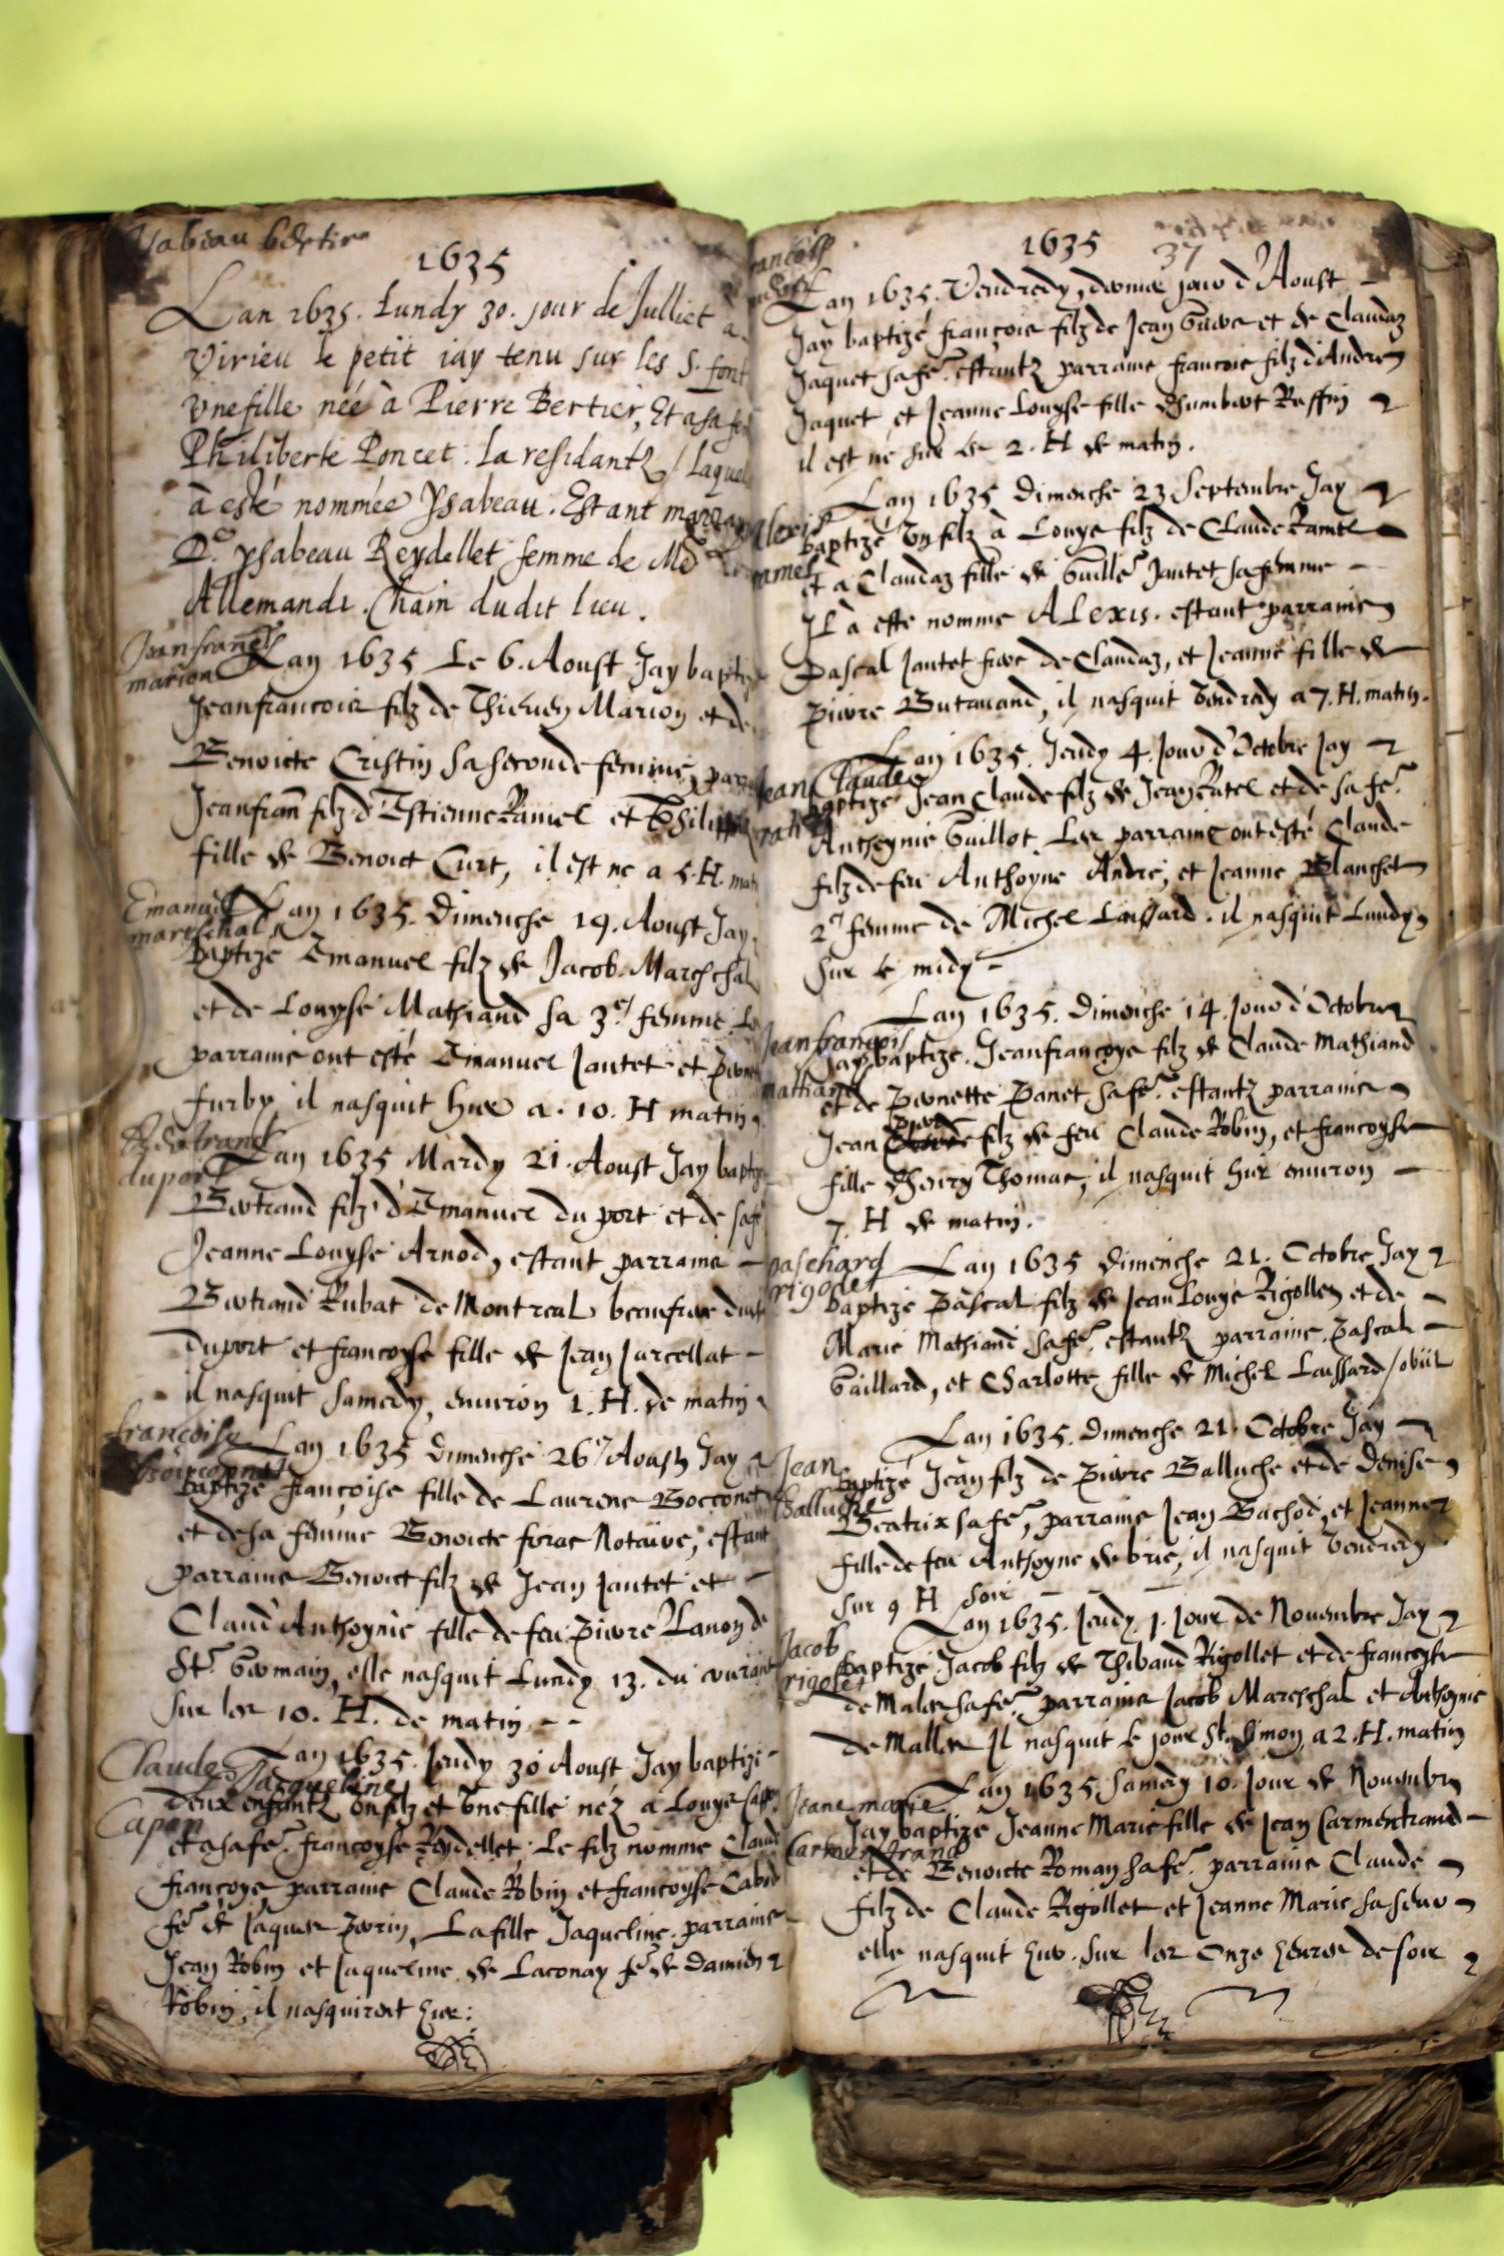 Ysabeau bertier
1635
Lan 1635. Lundy 30. jour de Julliet a
Virieu le petit iay tenu sur les S. font
Vne fille née à Pierre Bertier, Et a sa
Philiberte Poncet. La residantz / laquel
à esté nommée Ysabeau. Estant
Dᵉ. ysabeau Reydellet femme de
Allemand. Chain dudit lieu.
Jean françois
marion
Lan 1635 Le 6. Aoust Jay bapti
Jeanfrancois filz de Thieuen Marion et de
Benoicte Cristin sa seconde femme, parr
Jeanfran filz d'Estienne Ramel et Philip
fille de Benoict Curt, il est ne a 5. H. mat
Emanuel
mareschal
Lan 1635. Dimenche 19. Aoust Jay
baptizé Emanuel filz de Jacob Mareschal
et de Louyse Mathiand sa 3.e femme. Les
parrains ont esté Emanuel Jantet et
furby il nasquit hier a. 10. H matin
Bertrand
duport
Lan 1635 Mardy 21. Aoust Jay bapti
Bertrand filz d'Emanuel du port et de
Jeanne Louyse Arnod, estant parrains
Bertrand Rubat de Montreal beaufrere dud
duport et francoyse fille de Jean Jarcellat
il nasquit samedy, enuiron 1. H. de matin
françoise
Lan 1635 dimenche 26 Aoust Jay
baptizé françoise fille de Laurens Bocconet
et de sa femme Benoicte notaire, estant
parrains Benoict filz de Jean Jantet et
Claud'Anthoynie fille de feu Pierre de
St. Germain, elle nasquit Lundy 13. du courant
sur les 10. H. de matin
Claude & Jacqueline
Capon
Lan 1635. Jeudy 30 Aoust Jay baptizé
deux enfantz un filz et une fille néz a Louys
et a sa fe. francoyse Reydellet. Le filz nomme Claud
françoys, parrains Claude Robin et francoyse
fe de Jaques Perrin, La fille Jaqueline. parrains
Jean Robin et Jaqueline de Laconay fe de Damien
Robin, il nasquirent hier:
1635
37
Lan 1635. Vendredy, dernier jour d'Aoust
Jay baptizé françois filz de Jean et de Claudaz
Jaquet sa fe. estantz parrains francois filz d'Andre
Jaquet et Jeanne Louyse fille d'humbert Ruffin
il est né sur les 2. H de matin.
Alexis
ramel
Lan 1635 Dimenche 23 Septembre Jay
baptizé Un filz à Louys filz de Claude Ramel
et à Claudaz fille de Guille. Jantet sa femme
Il à esté nomme ALexis. estant parrains
Pascal Jantet frere de Claudaz, et Jeanne fille de
Pierre Butauand, il nasquit Vendredy a 7. H. matin.
Jean Claude
Lan 1635. Jeudy 4. Jour d'Octobre Jay
baptizé Jean Claude filz de Jean Ratel et de sa fe.
Anthoynie Guillot. Les parrains ont esté Claude
filz de feu Anthoyne André, et Jeanne Blanchet
2e femme de Michel Laissard. il nasquit Lundy
sur le midy
Jean françois
mathiand
Lan 1635. Dimenche 14. Jour d'Octobre
Jay baptize. Jeanfrançoys filz de Claude Mathiand
et de Pernette Panet sa fe. estantz parrains
Jean filz de feu Claude Robin, et francoyse
fille d'henry Thomas, il nasquit hier enuiron
7. H de matin.
paschard
rigolet
Lan 1635 dimenche 21. Octobre Jay
baptizé Pascal filz de Jean Louys Rigollet et de
Marie Mathiand sa fe. estantz parrains. Pascal
Gaillard, et Charlotte fille de Michel Laissard / obiit
Jean
Balluche
Lan 1635. dimenche 21. Octobre Jay
baptizé Jean filz de Pierre Balluche et de Denise
Beatrix sa fe, parrains Jean Bachod, et Jeanne
fille de feu Anthoyne de brie, il nasquit Vendredy
sur 9 H soir
Jacob
rigolet
Lan 1635. Jeudy 1. Jour de Nouembre Jay
baptizé Jacob filz de Thibaud Rigollet et de francoyse
de Males sa fe. parrains Jacob Mareschal et Anthoynie
de Malles Il nasquit le jour St. Simon a 2. H. matin
Jeane marie
Carmentrand
Lan 1635 Samedy 10. Jour de Nouembre
Jay baptize Jeanne Marie fille de Jean Carmentrand
et de Benoicte Roman sa fe. parrains Claude
filz de Claude Rigollet et Jeanne Marie sa seur
elle nasquit hier. sur les onze heures de soir